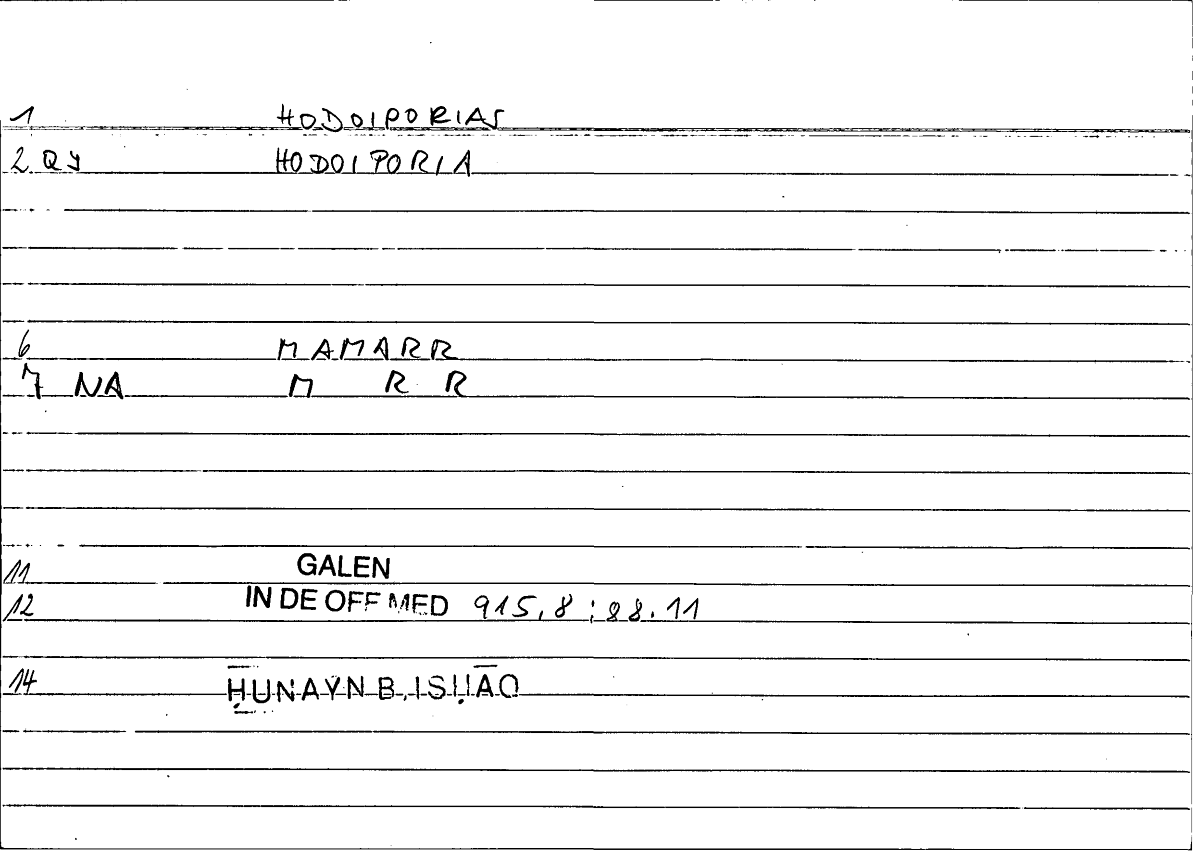 1 HODOIPORIAS
2. QY HODOIPORIA
6 MAMARR
7 NA M R R
11 GALEN
12 IN DE OFF MED 915,8 ; 88.11
14 ḤUNAYN B. ISḤĀQ